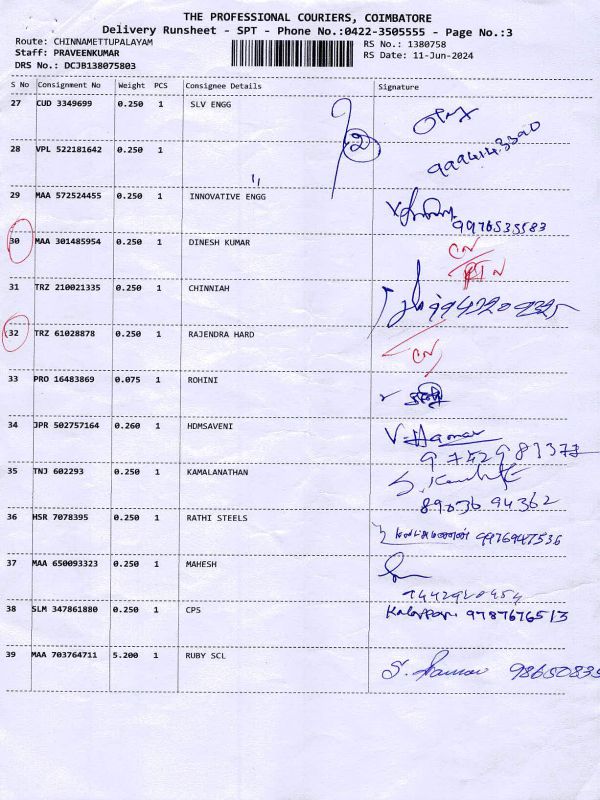 THE PROFESSIONAL COURIERS, COIMBATORE
Delivery Runsheet - SPT - Phone No.:0422-3505555 - Page No.:3
Route: CHINNAMETTUPALAYAM
RS No.: 1380758
Staff: PRAVEENKUMAR
RS Date: 11-Jun-2024
DRS No.: DCJB138075803
S No Consignment No Weight PCS Consignee Details Signature
27 CUD 3349699 0.250 1 SLV ENGG
28 VPL 522181642 0.250 1
2
29 MAA 572524455 0.250 1 INNOVATIVE ENGG
9976535583
30 MAA 301485954 0.250 1 DINESH KUMAR
CN
31 TRZ 210021335 0.250 1 CHINNIAH
32 TRZ 61028878 0.250 1 RAJENDRA HARD
CN
33 PRO 16483869 0.075 1 ROHINI
34 JPR 502757164 0.260 1 HDMSAVENI
35 TNJ 602293 0.250 1 KAMALANATHAN
89036 94362
36 HSR 7078395 0.250 1 RATHI STEELS
9976947536
37 MAA 650093323 0.250 1 MAHESH
38 SLM 347861880 0.250 1 CPS
9787676513
39 MAA 703764711 5.200 1 RUBY SCL
98650835